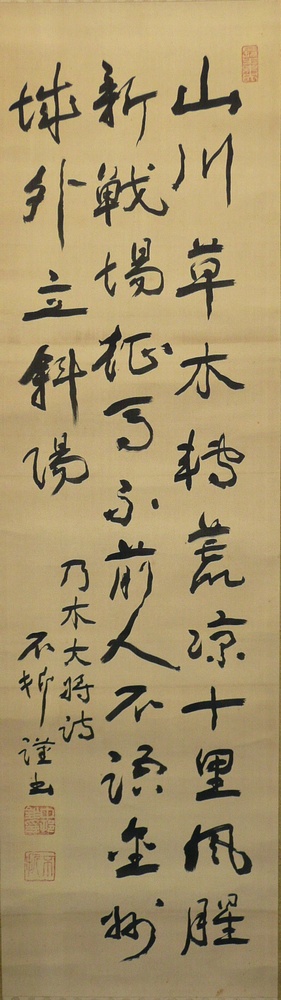 山川草木轉荒涼十里風腥
新戦場征馬不前人不語金州
城外立斜陽
乃木大将詩
不 謹書